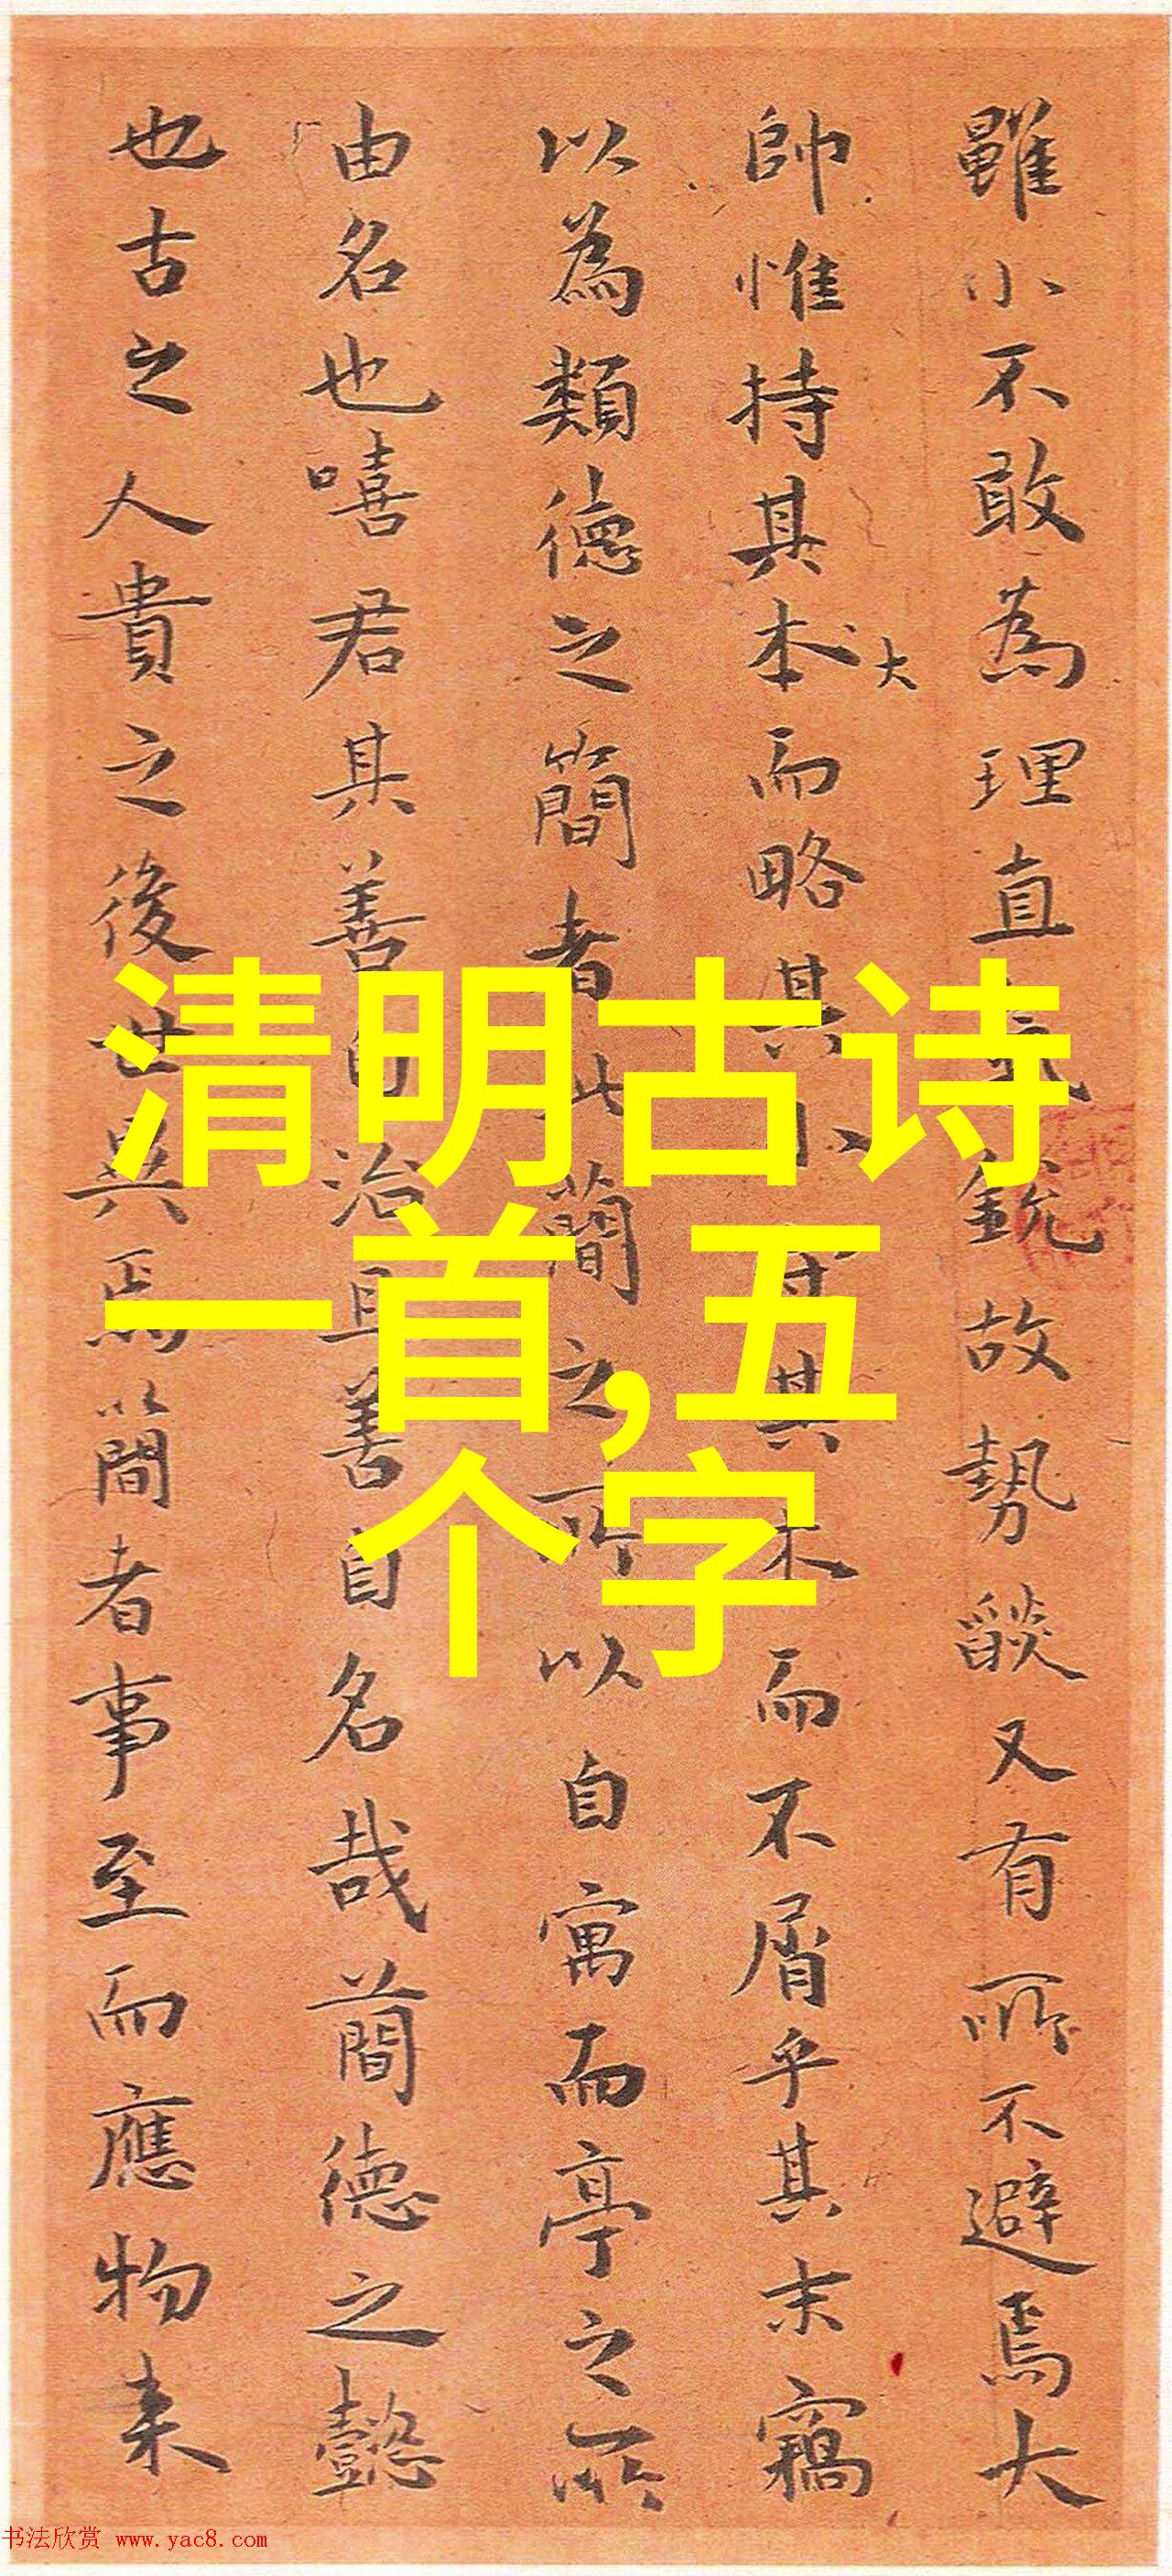 清明古诗
一首,五
个字
雖小不敢為理直氣銳故勢燄又有所不避焉大
帥惟持其本而略其小求其本而不屑乎其末竊
大
以為類德之簡者此簡之所以自寓而亭之所
由名也嘻君其善自治且善自名哉簡德之懿
也古之人貴之後世異焉簡者事至而應物来
书法欣赏 www.yac8.com